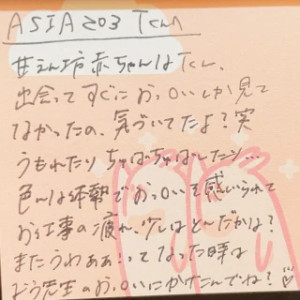 ASIA 203 Tくんへ
甘えん坊赤ちゃんはTくん、
出会ってすぐにおっ○いしか見て
なかったの、気づいてたよ？実
うもれたり ちゅぱちゅぱしたり…
色んな体勢でおっ○いを感じられて
お仕事の疲れ、少しはとんだかな？
またうわぁぁ!ってなった時は
先生のおっ○いにかけこんでね？♡